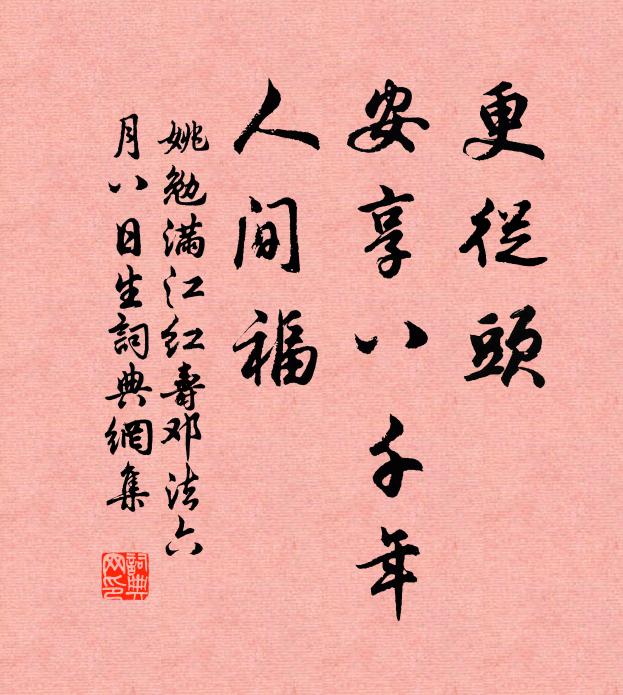 更從頭
安享八千年
人间福
姚勉满江红壽邓法六
月八日生詞典網集
詞典网印